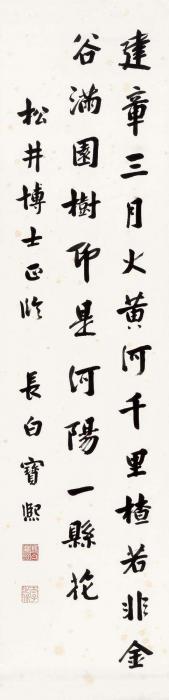 建章三月火黃河千里槎若非金
谷滿園樹即是河陽一縣花
松井博士正臨
長白寶熙